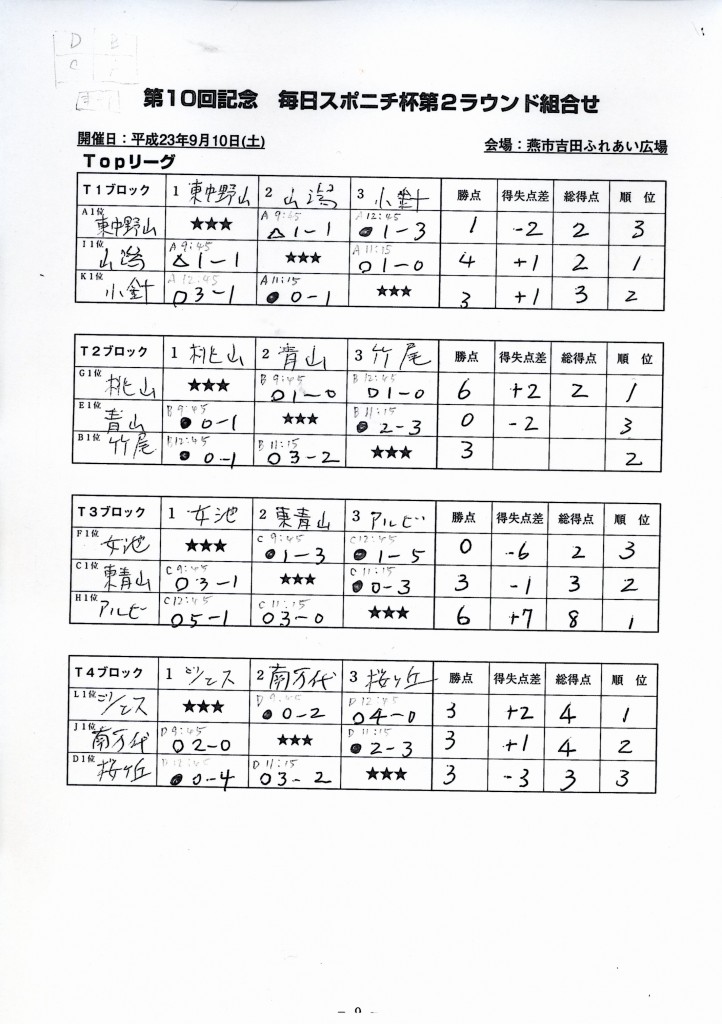 D B
C
第10回記念 毎日スポニチ杯第2ラウンド組合せ
開催日：平成23年9月10日(土) 会場：燕市吉田ふれあい広場
Topリーグ
T1ブロック 1 東中野山 2 山潟 3 小針 勝点 得失点差 総得点 順位
A1位 東中野山 ★★★ A 9:45 △1-1 A 12:45 ●1-3 1 -2 2 3
I1位 山潟 A 9:45 △1-1 ★★★ A 11:15 ○1-0 4 +1 2 1
K1位 小針 A 12:45 ○3-1 A 11:15 ●0-1 ★★★ 3 +1 3 2
T2ブロック 1 桃山 2 青山 3 竹尾 勝点 得失点差 総得点 順位
G1位 桃山 ★★★ B 9:45 ○1-0 B 12:45 ○1-0 6 +2 2 1
E1位 青山 B 9:45 ●0-1 ★★★ B 11:15 ●2-3 0 -2 3
B1位 竹尾 B 12:45 ●0-1 B 11:15 ○3-2 ★★★ 3 2
T3ブロック 1 女池 2 東青山 3 アルビ 勝点 得失点差 総得点 順位
F1位 女池 ★★★ C 9:45 ●1-3 C 12:45 ●1-5 0 -6 2 3
C1位 東青山 C 9:45 ○3-1 ★★★ C 11:15 ●0-3 3 -1 3 2
H1位 アルビ C 12:45 ○5-1 C 11:15 ○3-0 ★★★ 6 +7 8 1
T4ブロック 1 ジェス 2 南万代 3 桜ヶ丘 勝点 得失点差 総得点 順位
L1位 ジェス ★★★ D 9:45 ●0-2 D 12:45 ○4-0 3 +2 4 1
J1位 南万代 D 9:45 ○2-0 ★★★ D 11:15 ●2-3 3 +1 4 2
D1位 桜ヶ丘 D 12:45 ●0-4 D 11:15 ○3-2 ★★★ 3 -3 3 3
- 9 -